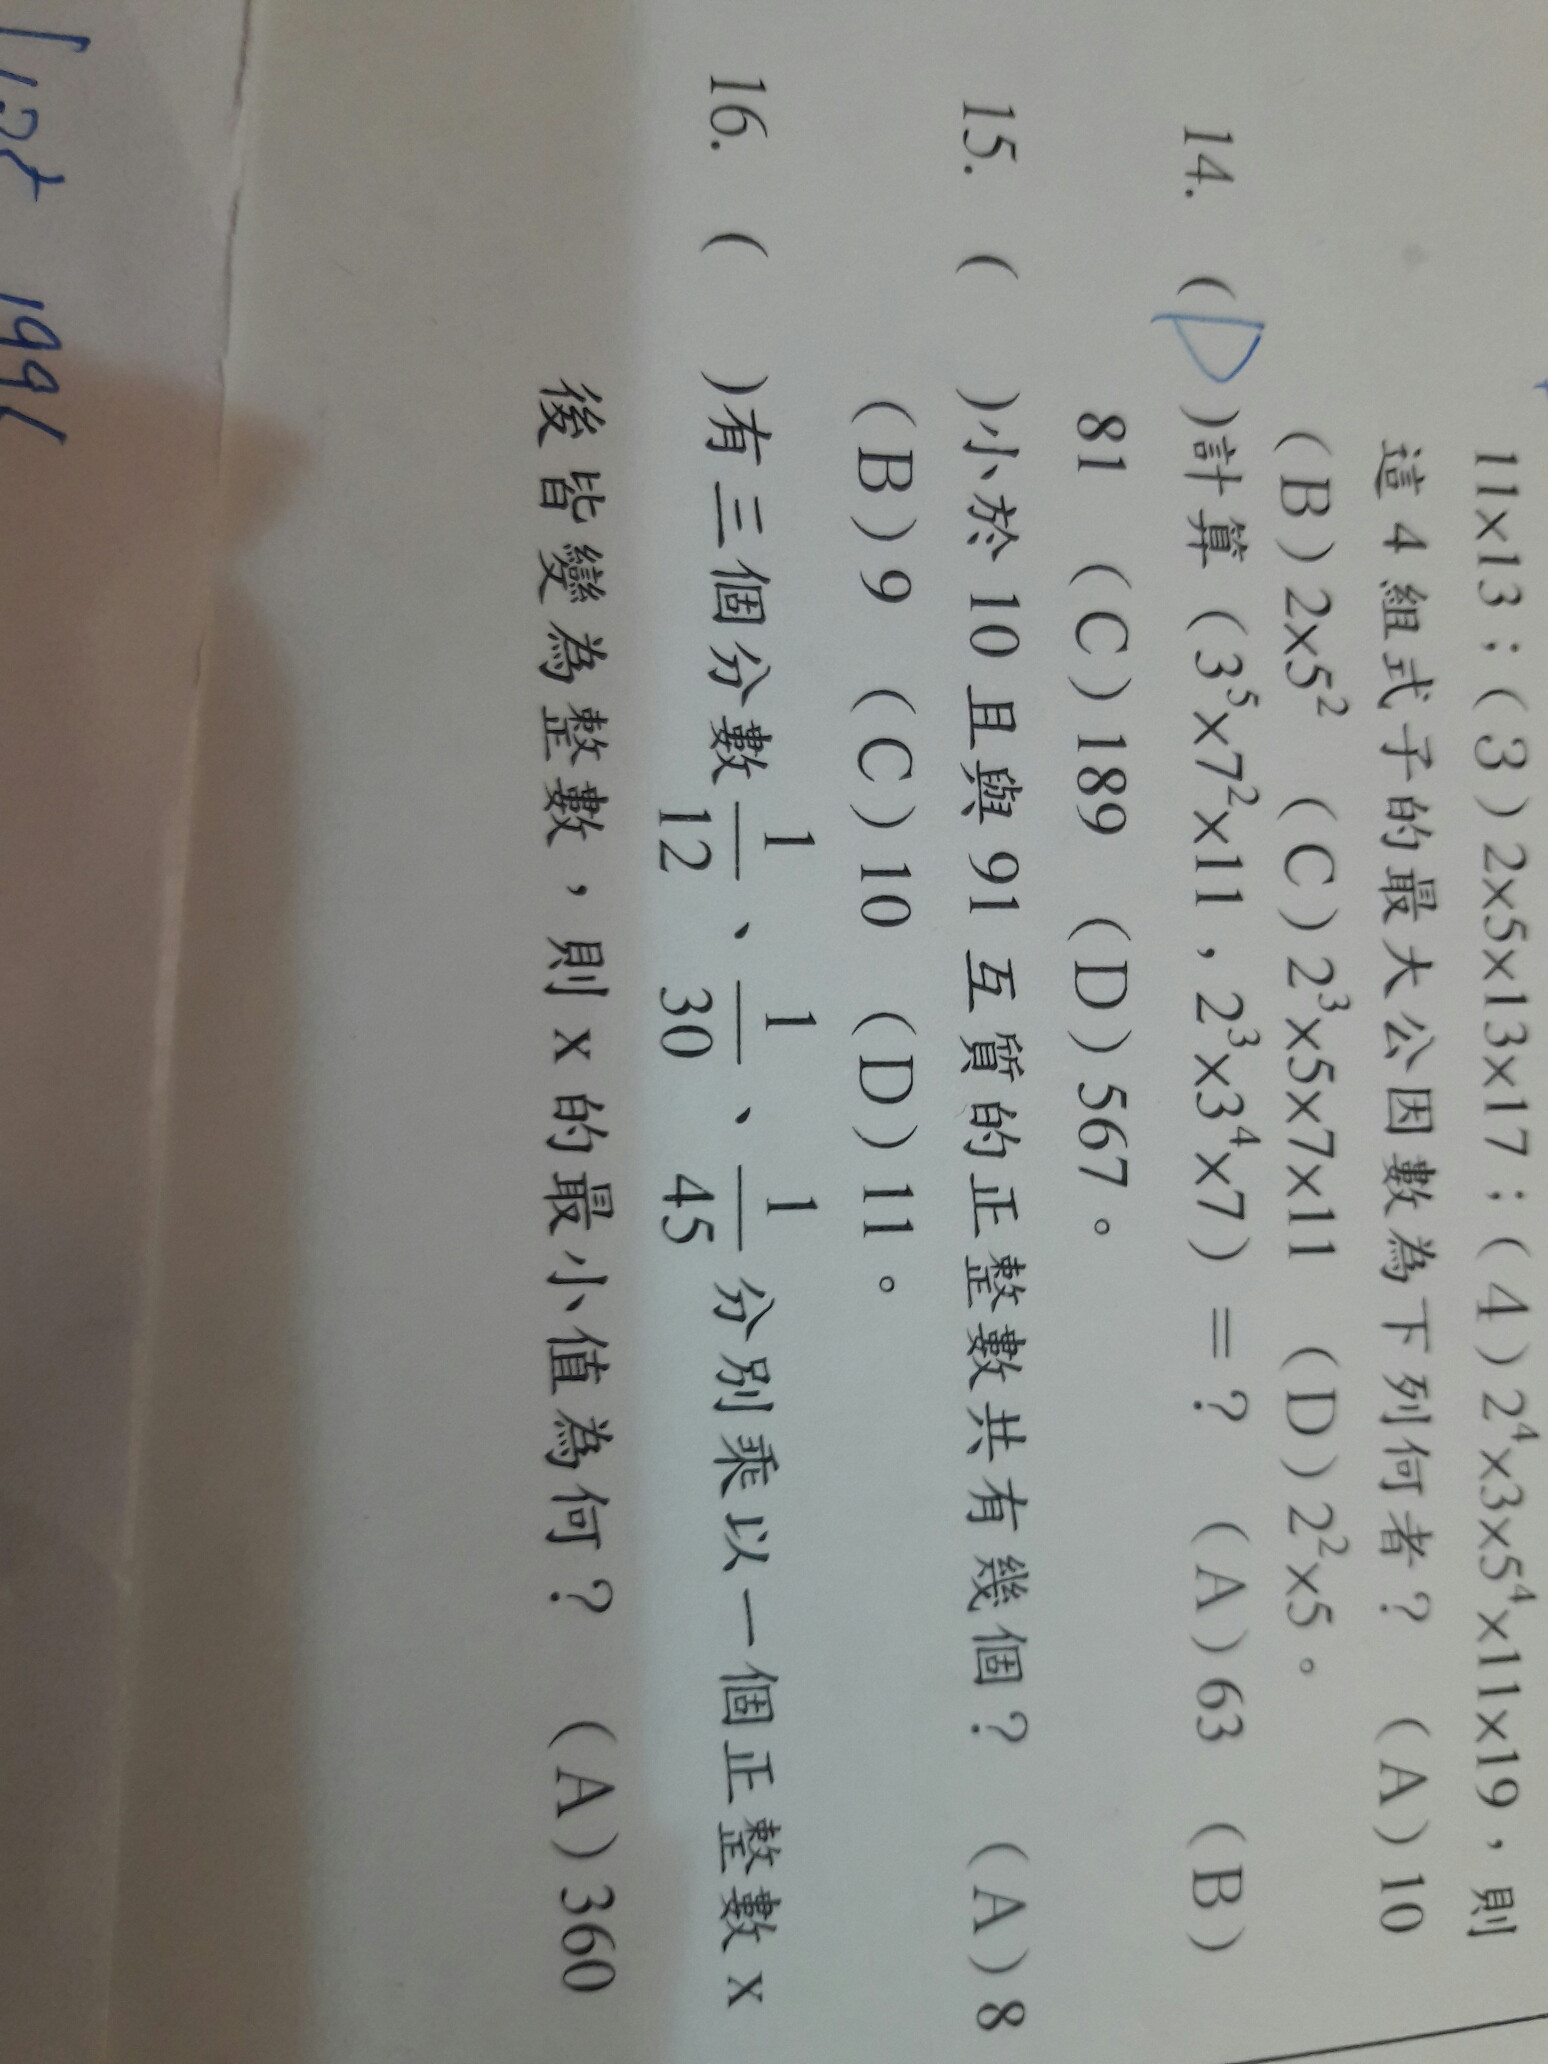 11×13；(3) 2×5×13×17；(4) 2⁴×3×5⁴×11×19，則
這 4 組式子的最大公因數為下列何者？ (A) 10
(B) 2×5² (C) 2³×5×7×11 (D) 2²×5。
14. (D)計算 (3⁵×7²×11，2³×3⁴×7) ＝？ (A) 63 (B)
81 (C) 189 (D) 567。
15. ( )小於 10 且與 91 互質的正整數共有幾個？ (A) 8
(B) 9 (C) 10 (D) 11。
16. ( )有三個分數 1/12、1/30、1/45 分別乘以一個正整數 x
後皆變為整數，則 x 的最小值為何？ (A) 360
199